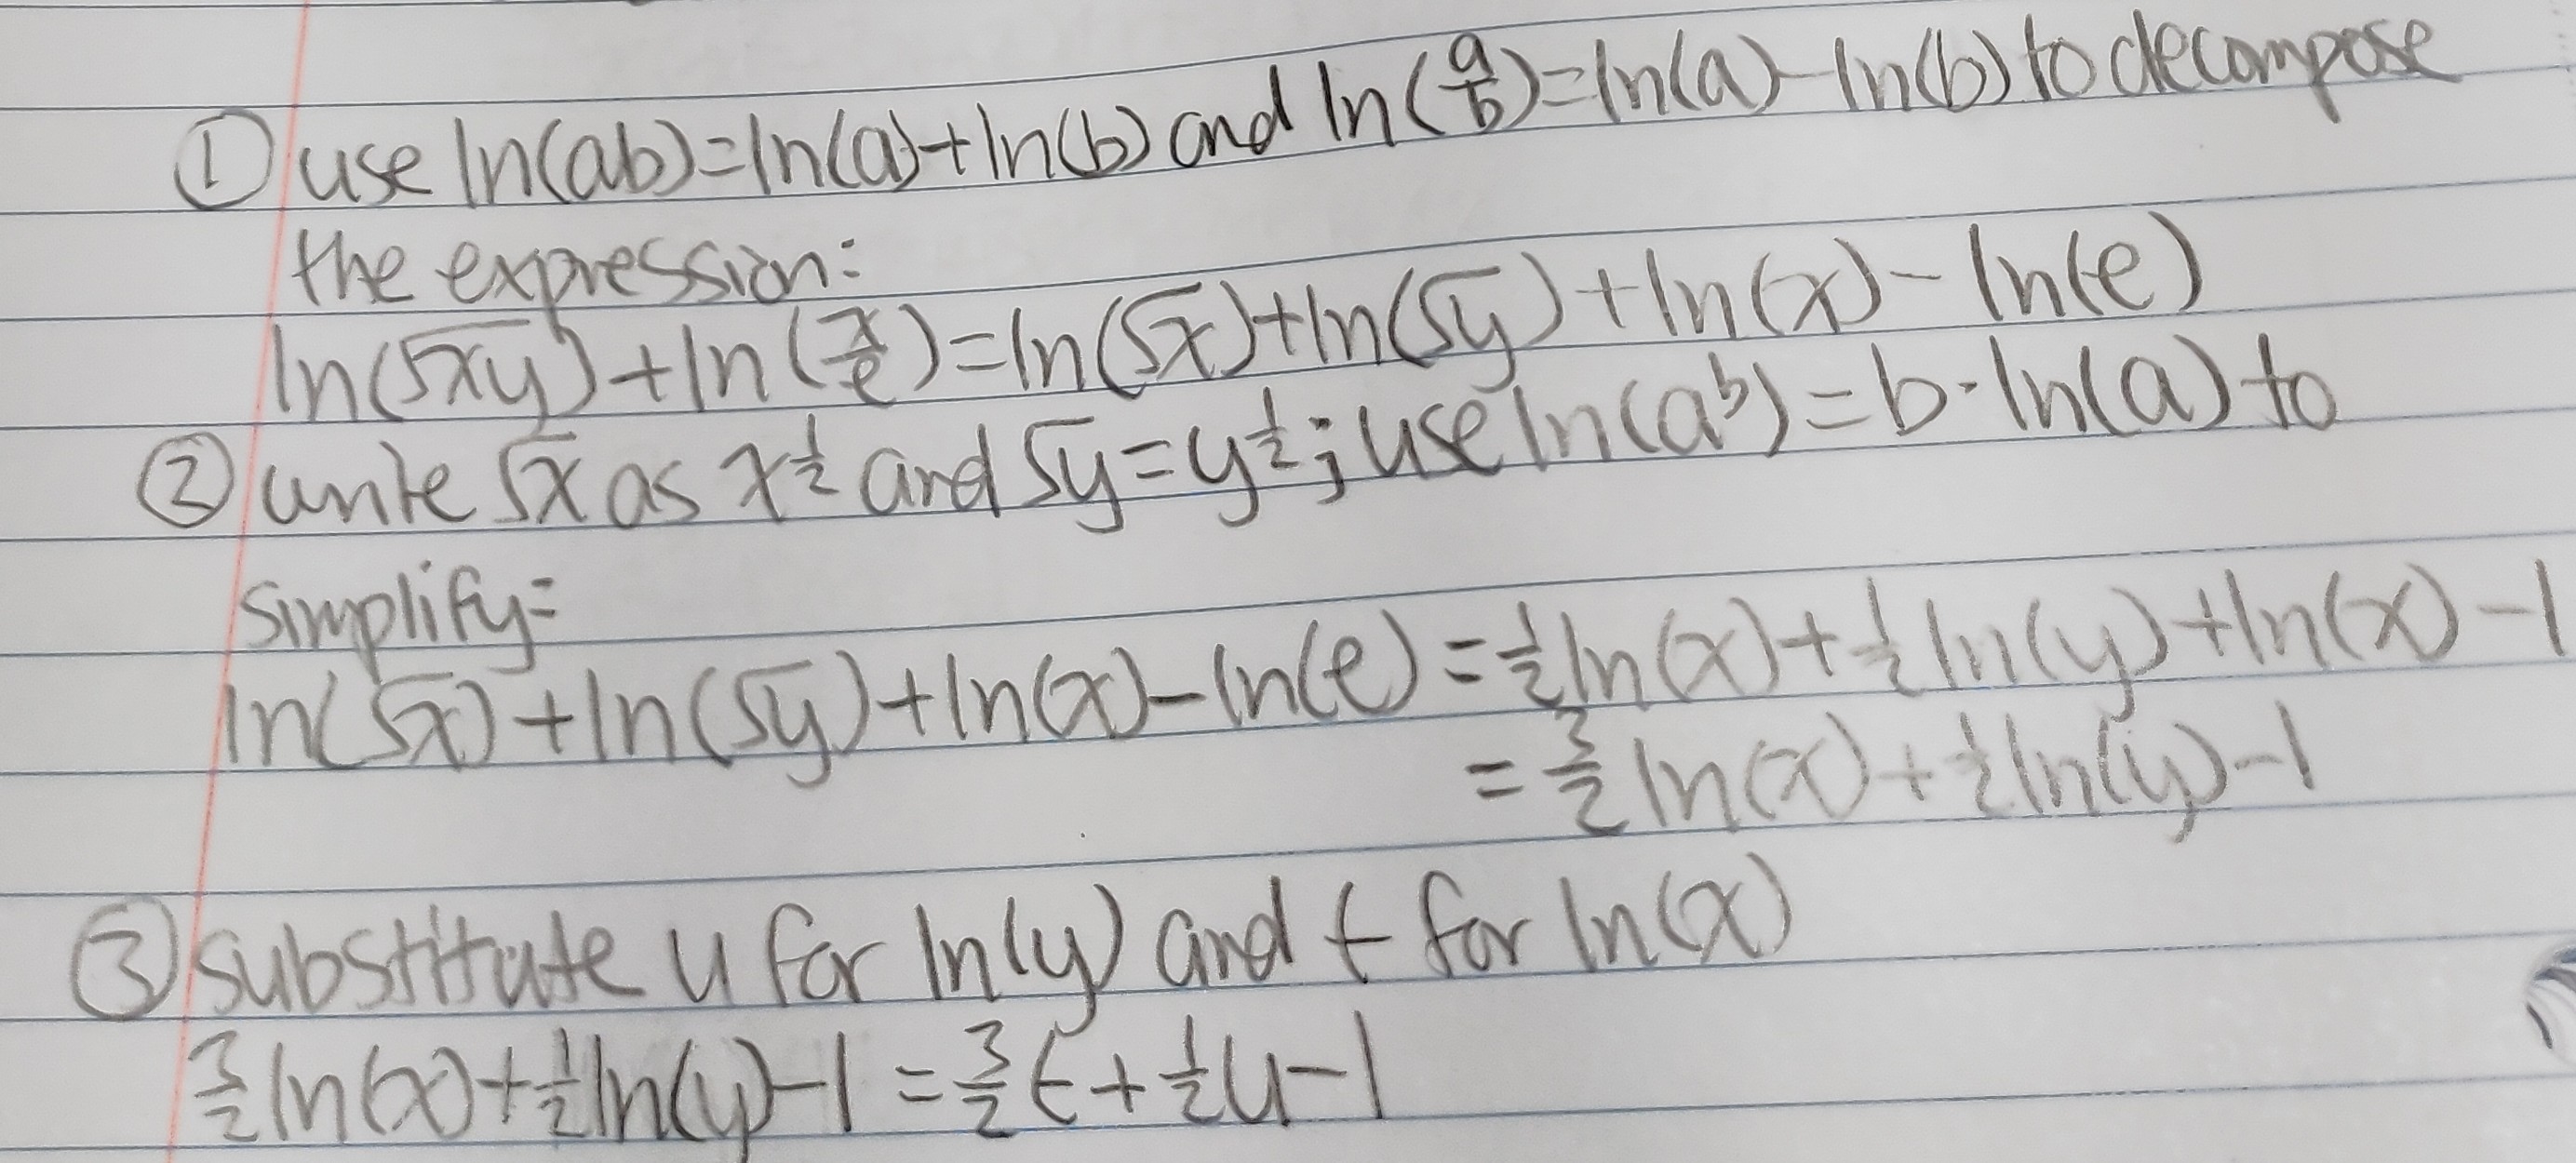 ① use ln(ab)=ln(a)+ln(b) and ln(a/b)=ln(a)-ln(b) to decompose
the expression:
ln(√xy)+ln(x/e)=ln(√x)+ln(√y)+ln(x)-ln(e)
② write √x as x^1/2 and √y=y^1/2; use ln(a^b)=b·ln(a) to
simplify:
ln(√x)+ln(√y)+ln(x)-ln(e)=1/2ln(x)+1/2ln(y)+ln(x)-1
=3/2ln(x)+1/2ln(y)-1
③ substitute u for ln(y) and t for ln(x)
3/2ln(x)+1/2ln(y)-1=3/2t+1/2u-1